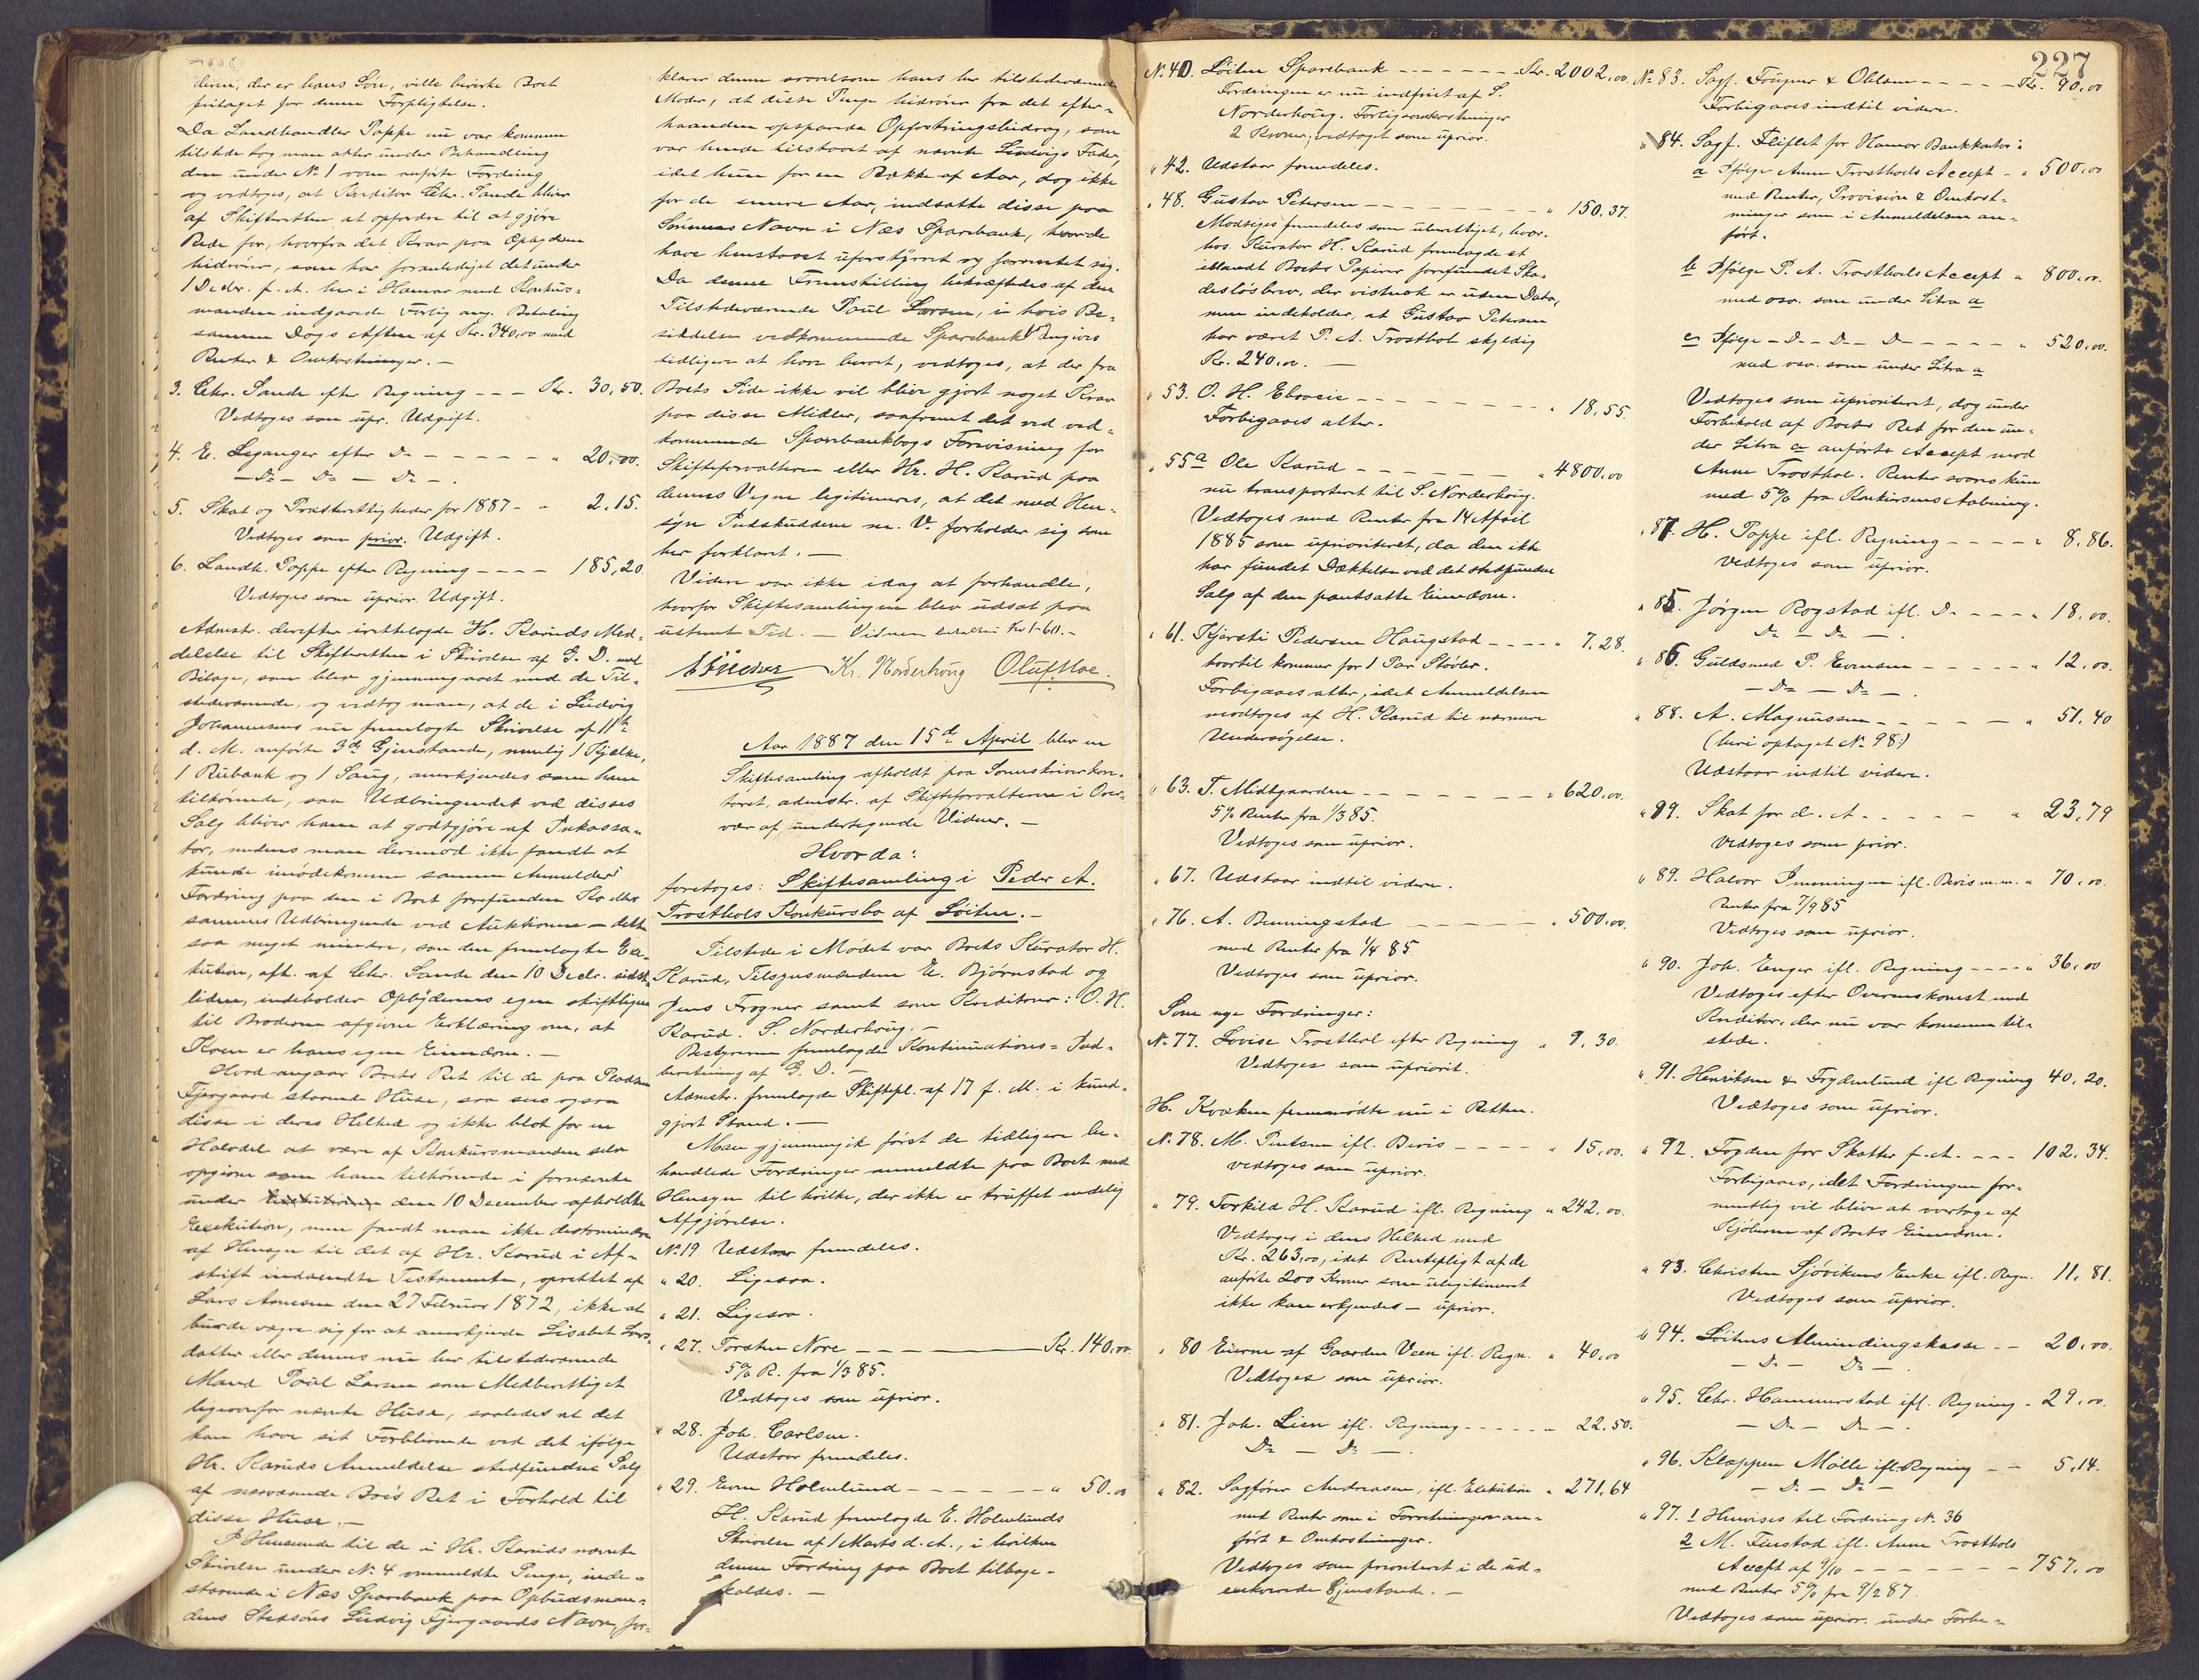 deren, der er hans Søn, ville bevirke Boet
fritaget for denne Forpligtelse.
Da Landhandler Poppe nu var kommen
tilstede tog man atter under Behandling
den under No 1 oven anførte Fordring
og vedtoges, at Kreditor Chr. Sande bliver
af Skifteretten at opfordre til at gjøre
Rede for, hvorfra det Krav paa Opbyderen
hidrører, som har foranlediget det under
1 Decbr. f. A. her i Hamar med Konkurs-
manden indgaaede Forlig ang. Betaling
samme Dags Aften af Kr. 340,00 med
Renter & Omkostninger. —
3. Chr. Sande efter Regning — — — Kr. 30,50.
Vedtoges som upr. Udgift.
4. E. Leganger efter Do — — — — " 20,00.
— Do — Do — Do — .
5. Skat og Præsterettigheder for 1887 - " 2,15.
Vedtoges som prior. Udgift.
6. Landh. Poppe efter Regning — — — — 185,20
Vedtoges som uprior. Udgift.
Admstr. derefter irettelagde H. Karuds Med-
delelse til Skifteretten i Skrivelse af G. D. med
Bilage, som blev gjennemgaaet med de Til-
stedeværende, og vedtog man, at de i Ludvig
Johannesens nu fremlagte Skrivelse af 11te
d. M. anførte 3de Gjenstande, nemlig 1 Kjælke,
1 Rubank og 1 Saug, anerkjendes som ham
tilhørende, saa Udbringendet ved disses
Salg bliver ham at godtgjøre af Inkassa-
tor, medens man derimod ikke fandt at
kunne imødekomme samme Anmelders
Fordring paa den i Boet forefundne Ko eller
sammes Udbringende ved Auktionen — dette
saa meget mindre, som den fremlagte Exe-
kution, afh. af Chr. Sande den 10 Decbr. sidst-
leden, indeholder Opbyderens egen skriftligen
til Broderen afgivne Erklæring om, at
Koen er hans egen Eiendom. —
Hvad angaar Boets Ret til de paa Pladsen
Fjergaard staaende Huse, saa sees ogsaa
disse i deres Helhed og ikke blot for en
Halvdel at være af Konkursmanden selv
opgivne som ham tilhørende i fornævnte
under den 10 December afholdte
Exekution, men fandt man ikke destomindre
af Hensyn til det af Hr. Karud i Af-
skrift indsendte Testamente, oprettet af
Lars Arnesen den 27 Februar 1872, ikke at
burde vægre sig for at anerkjende Lisabet Lars-
datter eller dennes nu her tilstedeværende
Mand Poul Larsen som Medberettiget
ligeoverfor nævnte Huse, saaledes at det
kan have sit Forblivende ved det ifølge
Hr. Karuds Anmeldelse stedfundne Salg
af nærværende Boes Ret i Forhold til
disse Huse. —
I Henseende til de i Hr. Karuds nævnte
Skrivelse under No 4 ommeldte Penge, inde-
staaende i Næs Sparebank paa Opbudsman-
dens Stedsøns Ludvig Fjergaards Navn, for-
klarer denne saavelsom hans her tilstedeværende
Moder, at disse Penge hidrører fra det efter-
haanden opsparede Opfostringsbidrag, som
var hende tilstaaet af nævnte Ludvigs Fader,
idet hun for en Række af Aar, dog ikke
for de senere Aar, indsatte disse paa
Sønnens Navn i Næs Sparebank, hvor de
have henstaaet uforstyrret og forrentet sig.
Da denne Fremstilling bekræftedes af den
Tilstedeværende Poul Larsen, i hvis Be-
siddelse vedkommende Sparebankb. angives
tidligere at have beroet, vedtoges, at der fra
Boets Side ikke vil blive gjort noget Krav
paa disse Midler, saafremt det ved ved-
kommende Sparebankbogs Forevisning for
Skifteforvalteren eller Hr. H. Karud paa
dennes Vegne legitimeres, at det med Hen-
syn Indskuddene m. V. forholder sig som
her forklaret. —
Videre var ikke idag at forhandle,
hvorfor Skiftesamlingen blev udsat paa
ubestemt Tid. — Vidnerne betaltes Kr 1-60. -
Kr. Norderhoug Oluf Moe.
Aar 1887 den 15de April blev en
Skiftesamling afholdt paa Sorenskriverkon-
toret, admstr. af Skifteforvalteren i Over-
vær af undertegnede Vidner. —
Hvorda:
foretoges: Skiftesamling i Peder A.
Trosthols Konkursbo af Løiten. —
Tilstede i Mødet var Boets Kurator H.
Karud, Tilsynsmændene E. Bjørnstad og
Jens Frogner samt som Kreditorer: O. H.
Karud. S. Norderhoug. —
Bestyreren fremlagde Kontinuations-Ind-
beretning af G. D. —
Admstr. fremlagde Skiftepl. af 17 f. M. i kund-
gjort Stand. —
Man gjennemgik først de tidligere be-
handlede Fordringer anmeldte paa Boet med
Hensyn til hvilke, der ikke er truffet endelig
Afgjørelse.
No 19 Udstaar fremdeles.
" 20. Ligesaa.
" 21. Ligesaa.
" 27. Torsten Nore — — — — Kr. 140,00.
5% R. fra 1/3 85.
Vedtoges som uprior.
" 28. Joh. Carlsen.
Udstaar fremdeles.
" 29. Even Holmlund — — — — — " 50.00
H. Karud fremlagde E. Holmlunds
Skrivelse af 1 Marts d. A., i hvilken
denne Fordring paa Boet tilbage-
kaldes. —
No 40. Løiten Sparebank — — — — — Kr. 2002,00.
Fordringen er nu indfriet af S.
Norderhoug. Forligsomkostninger
2 Kroner; vedtoget som uprior.
" 42. Udstaar fremdeles.
" 48. Gustav Petersen — — — — — " 150,37.
Modsiges fremdeles som uberettiget, hvor-
hos Kurator H. Karud fremlagde et
iblandt Boets Papirer forefundet Ska-
desløsbrev, der vistnok er uden Data,
men indeholder, at Gustav Petersen
har været P. A. Trosthol skyldig
Kr. 240,00. —
" 53. O. H. — — — — — " 18,55.
Forbigaaes atter.
" 55a Ole Karud — — — — — " 4800,00
nu transporteret til S. Norderhoug.
Vedtoges med Renter fra 14 April
1885 som uprioriteret, da den ikke
har fundet Dækkelse ved det stedfundne
Salg af den pantsatte Eiendom.
" 61. Kjersti Pedersen Haugstad — — — — " 7,28.
hvortil kommer for 1 Par Støvler.
Forbigaaes atter, idet Anmeldelsen
modtoges af H. Karud til nærmere
Undersøgelse.
" 63. T. Midtgaarden — — — — — " 620,00.
5% Renter fra 1/3 85.
Vedtoges som uprior.
" 67. Udstaar indtil videre.
" 76. A. Benningstad — — — — — " 500,00.
med Renter fra 1/4 85
Vedtoges som uprior.
Som nye Fordringer:
No 77. Lovise Trosthol efter Regning " 9,30.
Vedtoges som upriorit.
H. Kvæken fremmødte nu i Retten.
No 78. M. Pentsen ifl. Bevis — — — — " 15,00.
vedtoges som uprior.
" 79. Torkild H. Karud ifl. Regning " 242,00.
Vedtoges i dens Helhed med
Kr. 263,00, idet Rentepligt af de
anførte 200 Kroner som ulegitimeret
ikke kan erkjendes — uprior.
" 80 Eierne af Gaarden Veen ifl. Regn. " 40,00
Vedtoges som uprior.
" 81. Joh. Lien ifl. Regning — — — — 22,50.
Do — Do — .
" 82. Sagfører Andreasen, ifl. Exekution " 271,64
med Renter som i Forretningen an-
ført & Omkostninger.
Vedtoges som prioriteret i de ud-
Gjenstande. —
227
No 83. Sagf. Fougner & Oldem — — — — Kr. 90,00
Forbigaaes indtil videre.
" 84. Sagf. Fliflet for Hamar Bankkontor:
a Ifølge Anne Trosthols Accept - " 500,00
med Renter, Provision & Omkost-
ninger som i Anmeldelsen an-
ført.
b Ifølge P. A. Trosthols Accept " 800,00.
med osv. som under Litra a
c Ifølge — D — D — D — — — " 520,00.
med osv. som under Litra a
Vedtoges som uprioriteret, dog under
Forbehold af Boets Ret for den un-
der Litra a anførte Accept mod
Anne Trosthol. Renter svares kun
med 5% fra Konkursens Aabning.
" 87. H. Poppe ifl. Regning — — — — " 8,86.
Vedtoges som uprior.
" 85. Jørgen Rogstad ifl. Do — — — " 18,00.
Do — Do — .
" 86. Guldsmed P. Evensen — — — — — " 12,00.
— Do — Do — .
" 88. A. Magnussen — — — — — " 51,40
(heri optaget No 98.)
Udstaar indtil videre.
" 99. Skat for d. A — — — — — " 23,79
Vedtoges som prior.
" 89. Halvor Immeringen ifl. Bevis m.m. " 70,00.
Renter fra 7/9 85
Vedtoges som uprior.
" 90. Joh. Enger ifl. Regning — — — — " 36,00
Vedtoges efter Overenskomst med
Kreditor, der nu var kommen til-
stede.
" 91. Henriksen & Frydenlund ifl. Regning 40,20.
Vedtoges som uprior.
" 92. Fogden for Skatter f. A. — — — 102,34.
Forbigaaes, idet Fordringen for-
mentlig vil blive at overtage af
Kjøberen af Boets Eiendom.
" 93. Christen Sjøvikens Enke ifl. Regn. 11,81.
Vedtoges som uprior.
" 94. Løitens Almindingskasse — — 20,00.
— Do — Do — .
" 95. Chr. Hammerstad ifl. Regning " 29,00.
— Do — Do — .
" 96. Kloppen Mølle ifl. Regning — — 5,14.
— Do — Do —
" 97. 1 Henvises til Fordring No 36
2 M. Finstad ifl. Anne Trosthols
Accept af 9/10 — — — — — 757,00
med Renter 5% fra 9/2 87.
Vedtoges som uprior. under Forbe-